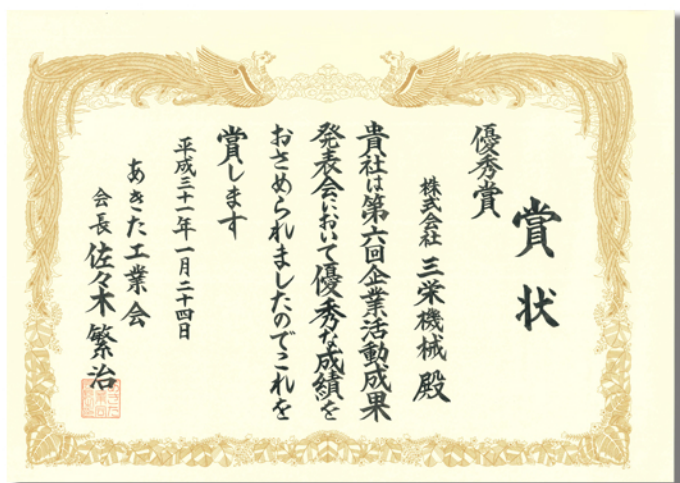 賞状
優秀賞
株式会社 三栄機械 殿
貴社は第六回企業活動成果
発表会において優秀な成績を
おさめられましたのでこれを
賞します
平成三十一年一月二十四日
あきた工業会
会長 佐々木 繁治